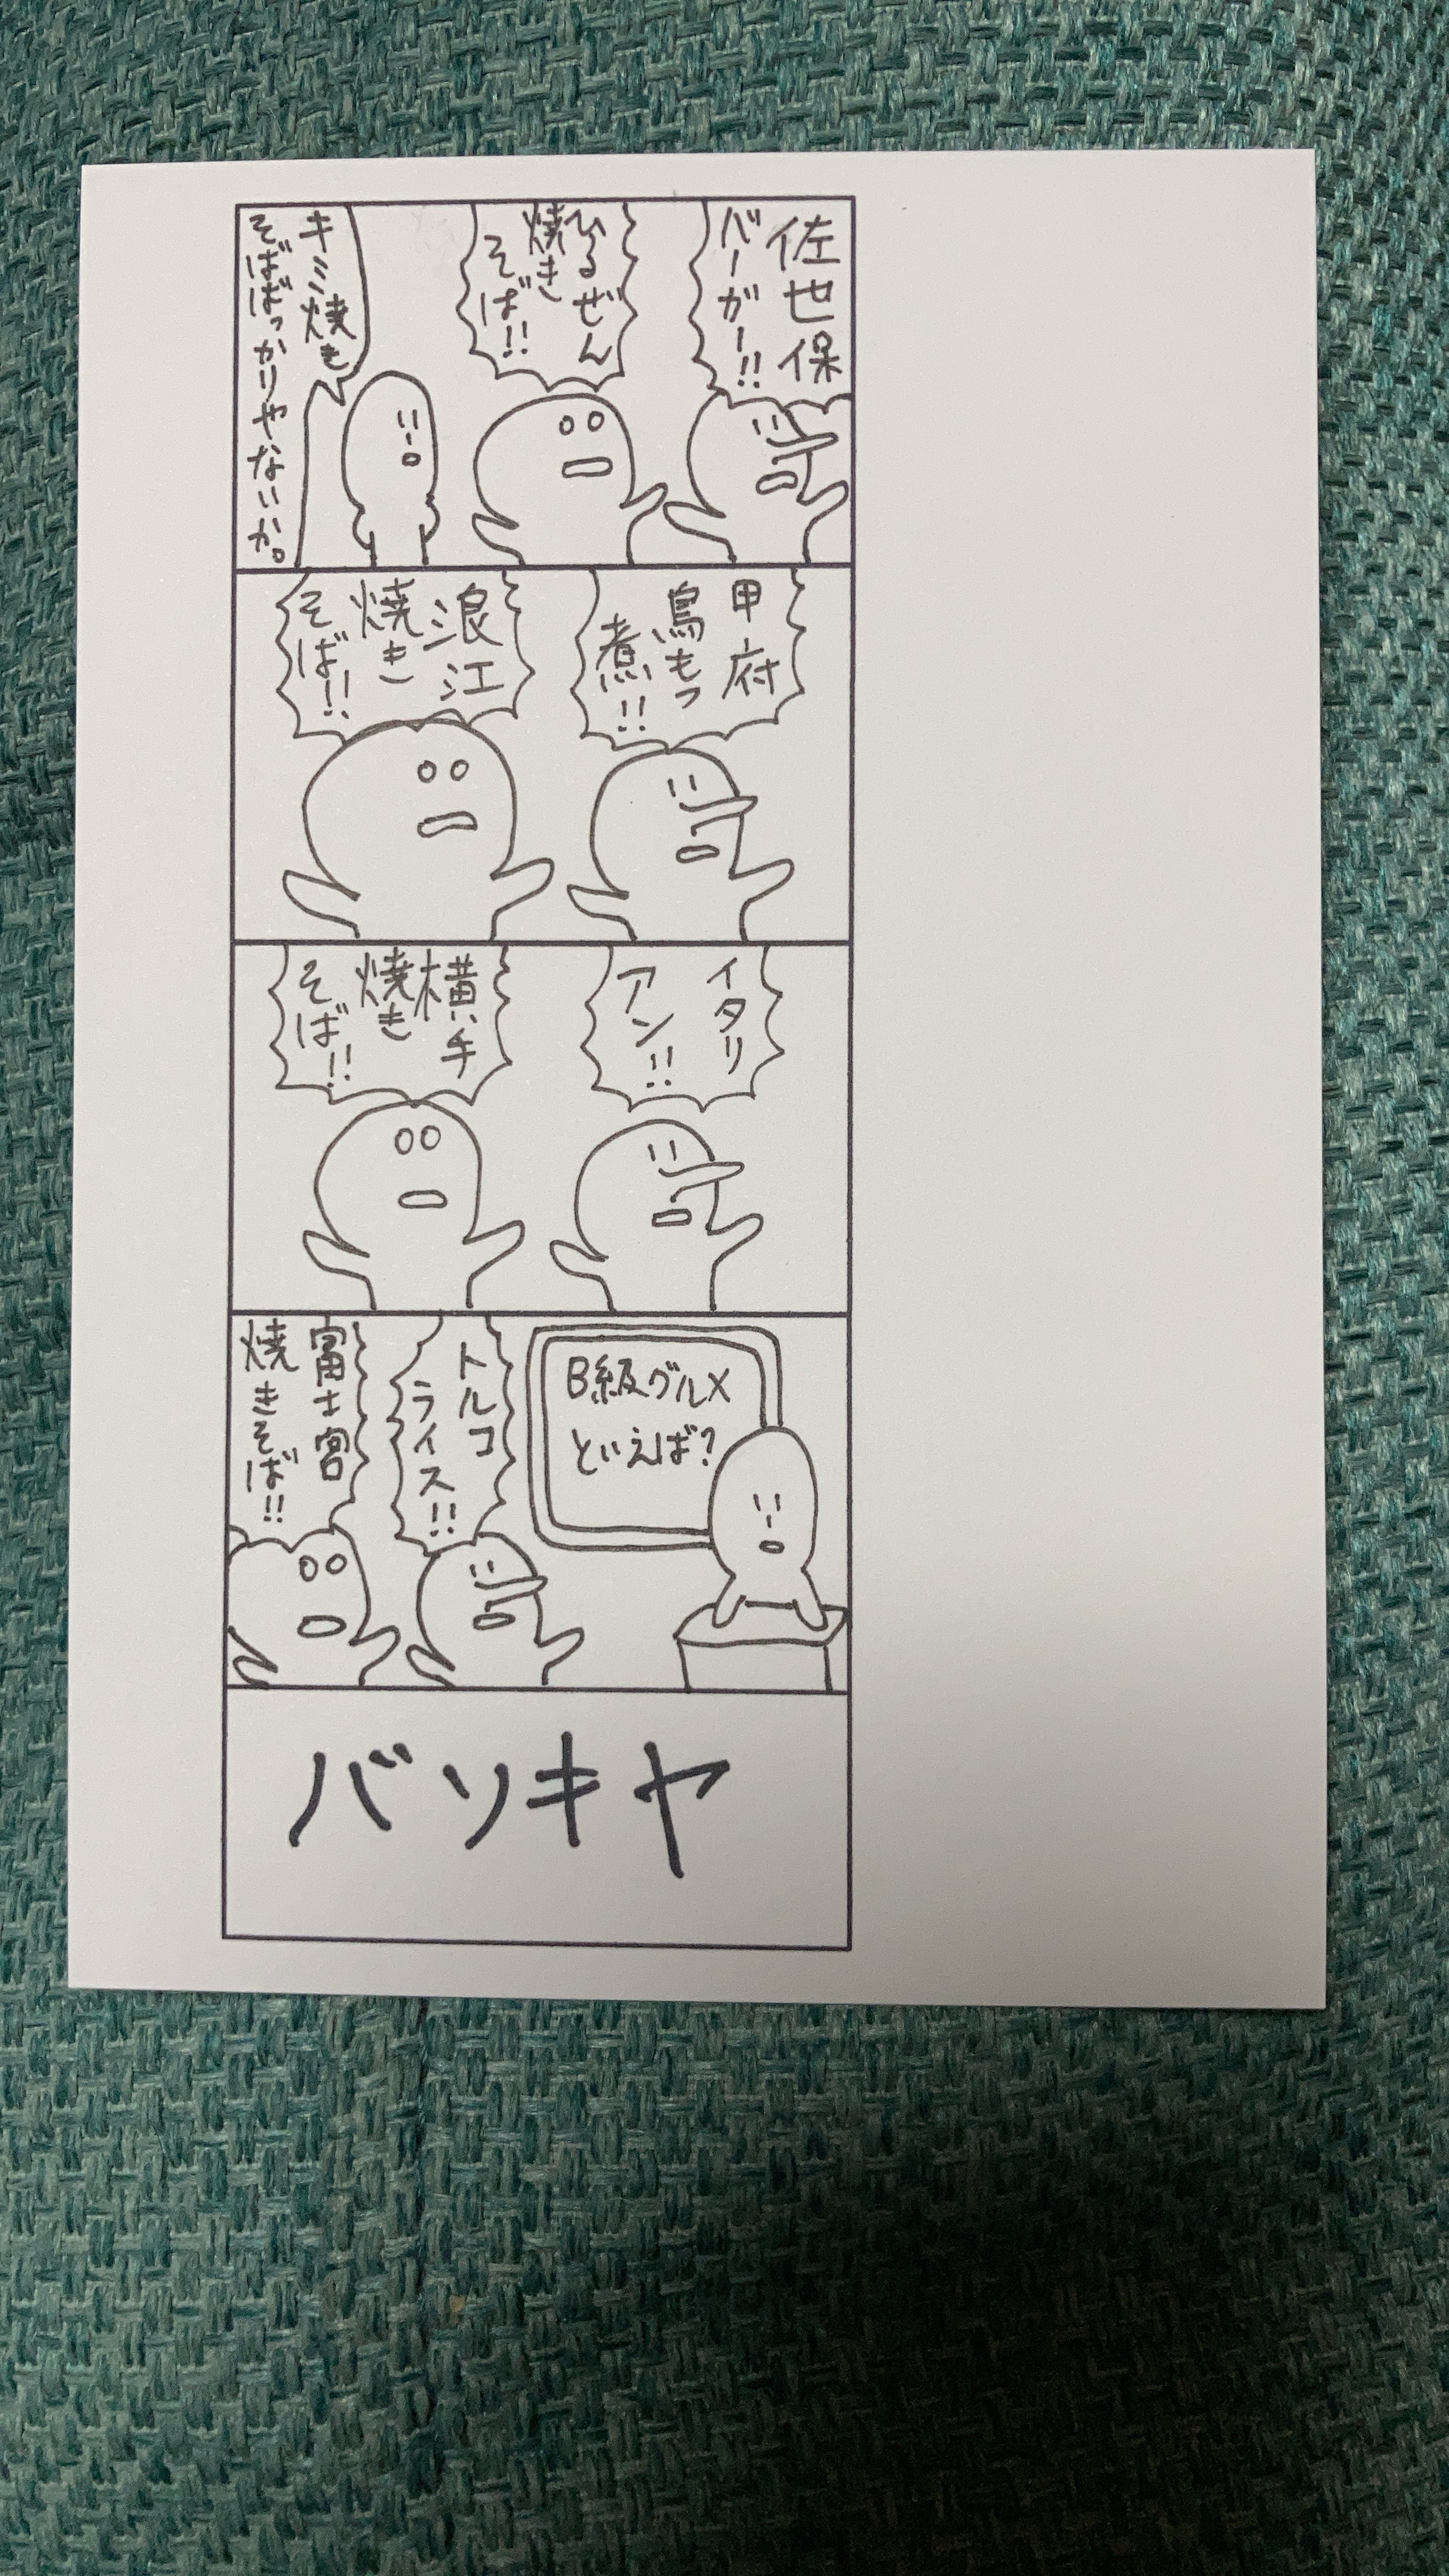 佐世保
バーガー!!
ひるぜん
焼き
そば!!
キミ焼き
そばばっかりやないか。
甲府
鳥もつ
煮!!
浪江
焼き
そば!!
イタリ
アン!!
横手
焼き
そば!!
B級グルメ
といえば?
トルコ
ライス!!
富士宮
焼きそば!!
バソキヤ